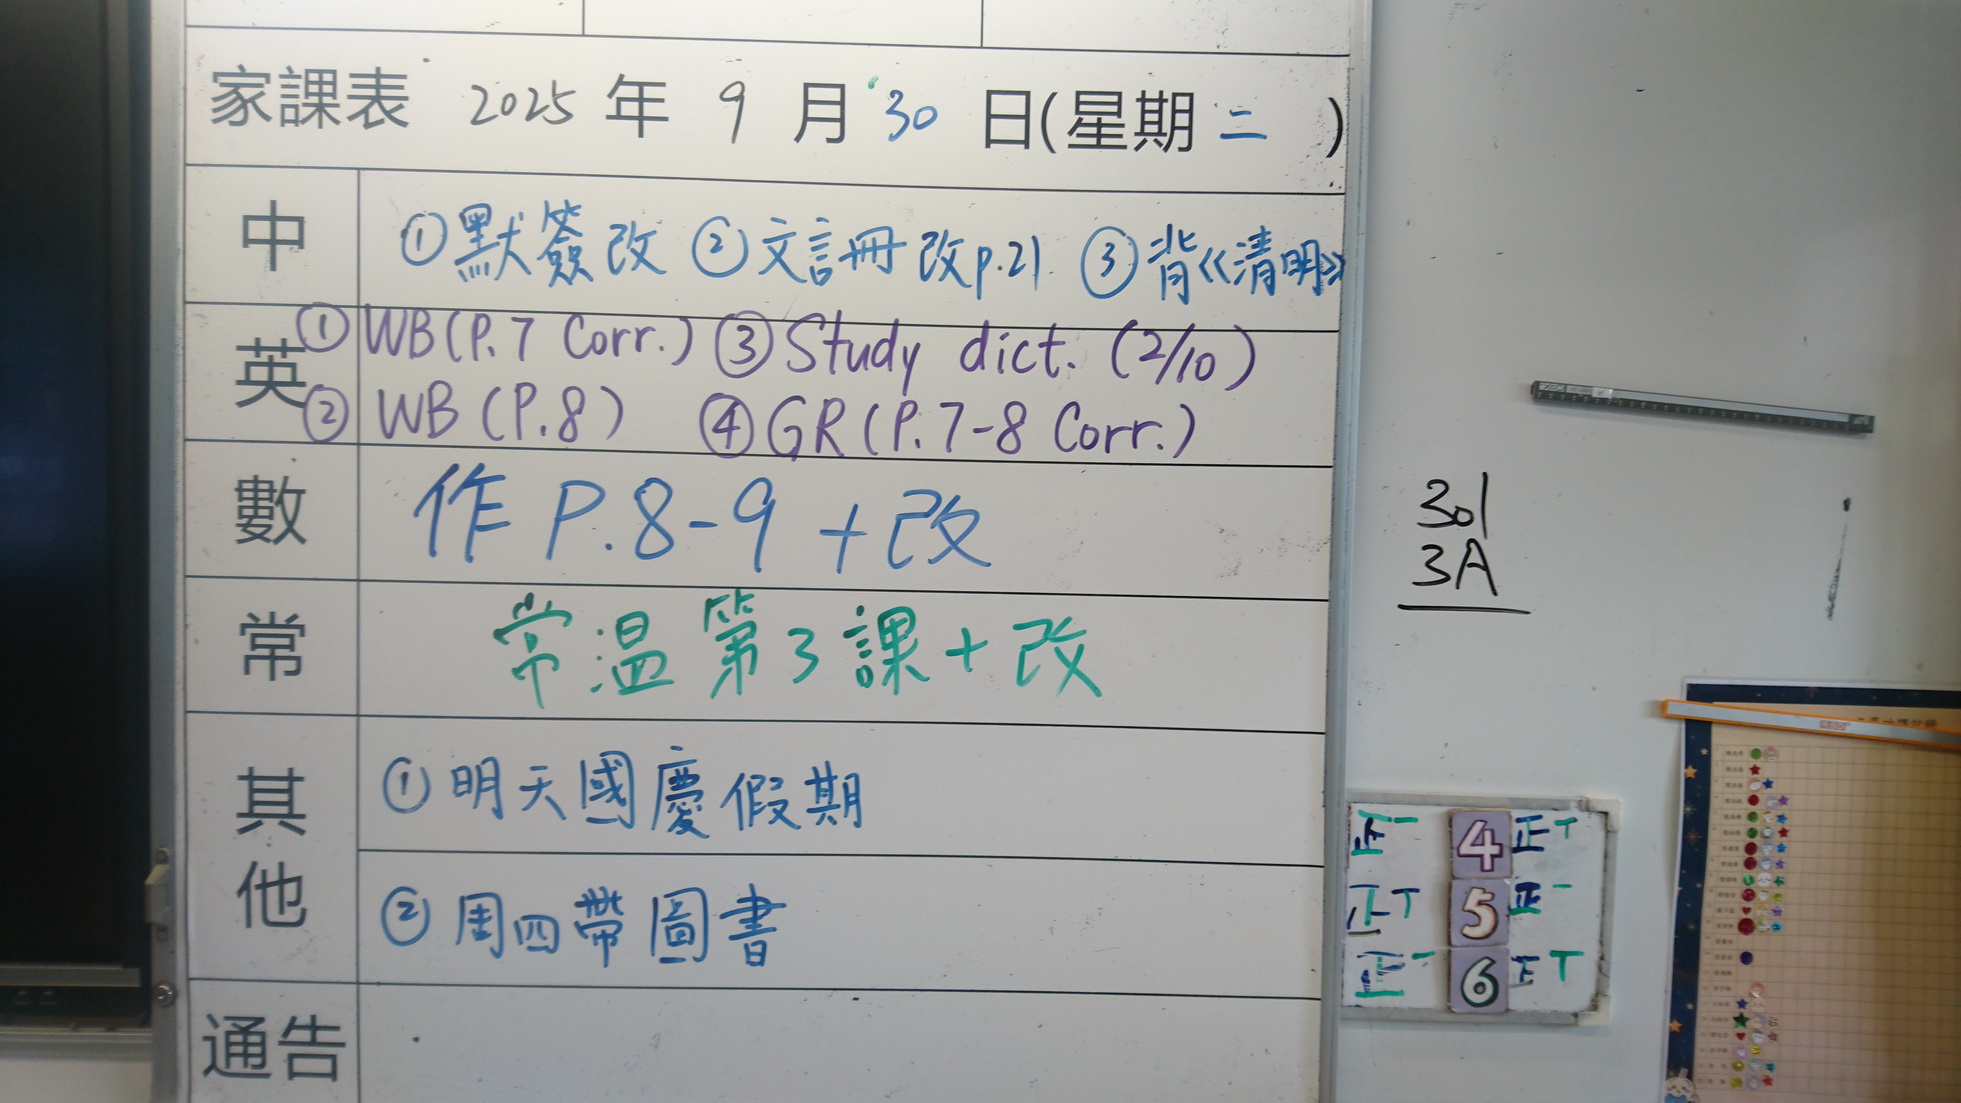 家課表 2025 年 9 月 30 日(星期 二 )
中 ①默簽改 ②文言冊改p.21 ③背《清明》
英 ①WB(P.7 Corr.) ③Study dict. (2/10)
②WB (P.8) ④GR(P.7-8 Corr.)
數 作 P.8-9 + 改
常 常温第3課+改
其他 ①明天國慶假期
②周四帶圖書
通告
301
3A
正一 4 正丅
正丅 5 正一
正一 6 正丅